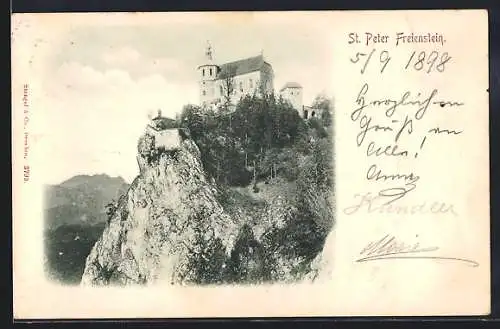 St. Peter Freienstein.
5/9 1898
Herzlichen
Gruß an
Alle!
Anna
Kandler
Marie
Stengel & Co., Dresden